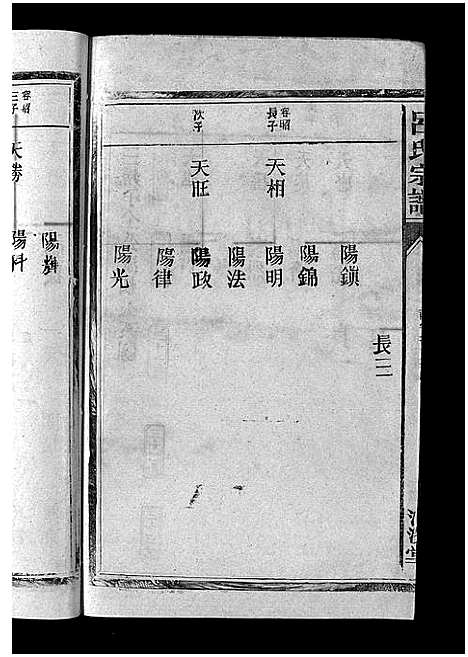 呂氏宗譜
長三
陽鎖
陽錦
容昭長子
天相
陽明
陽法
容昭次子
天旺
陽政
陽律
陽光
陽輝
容昭三子
天勝
陽科